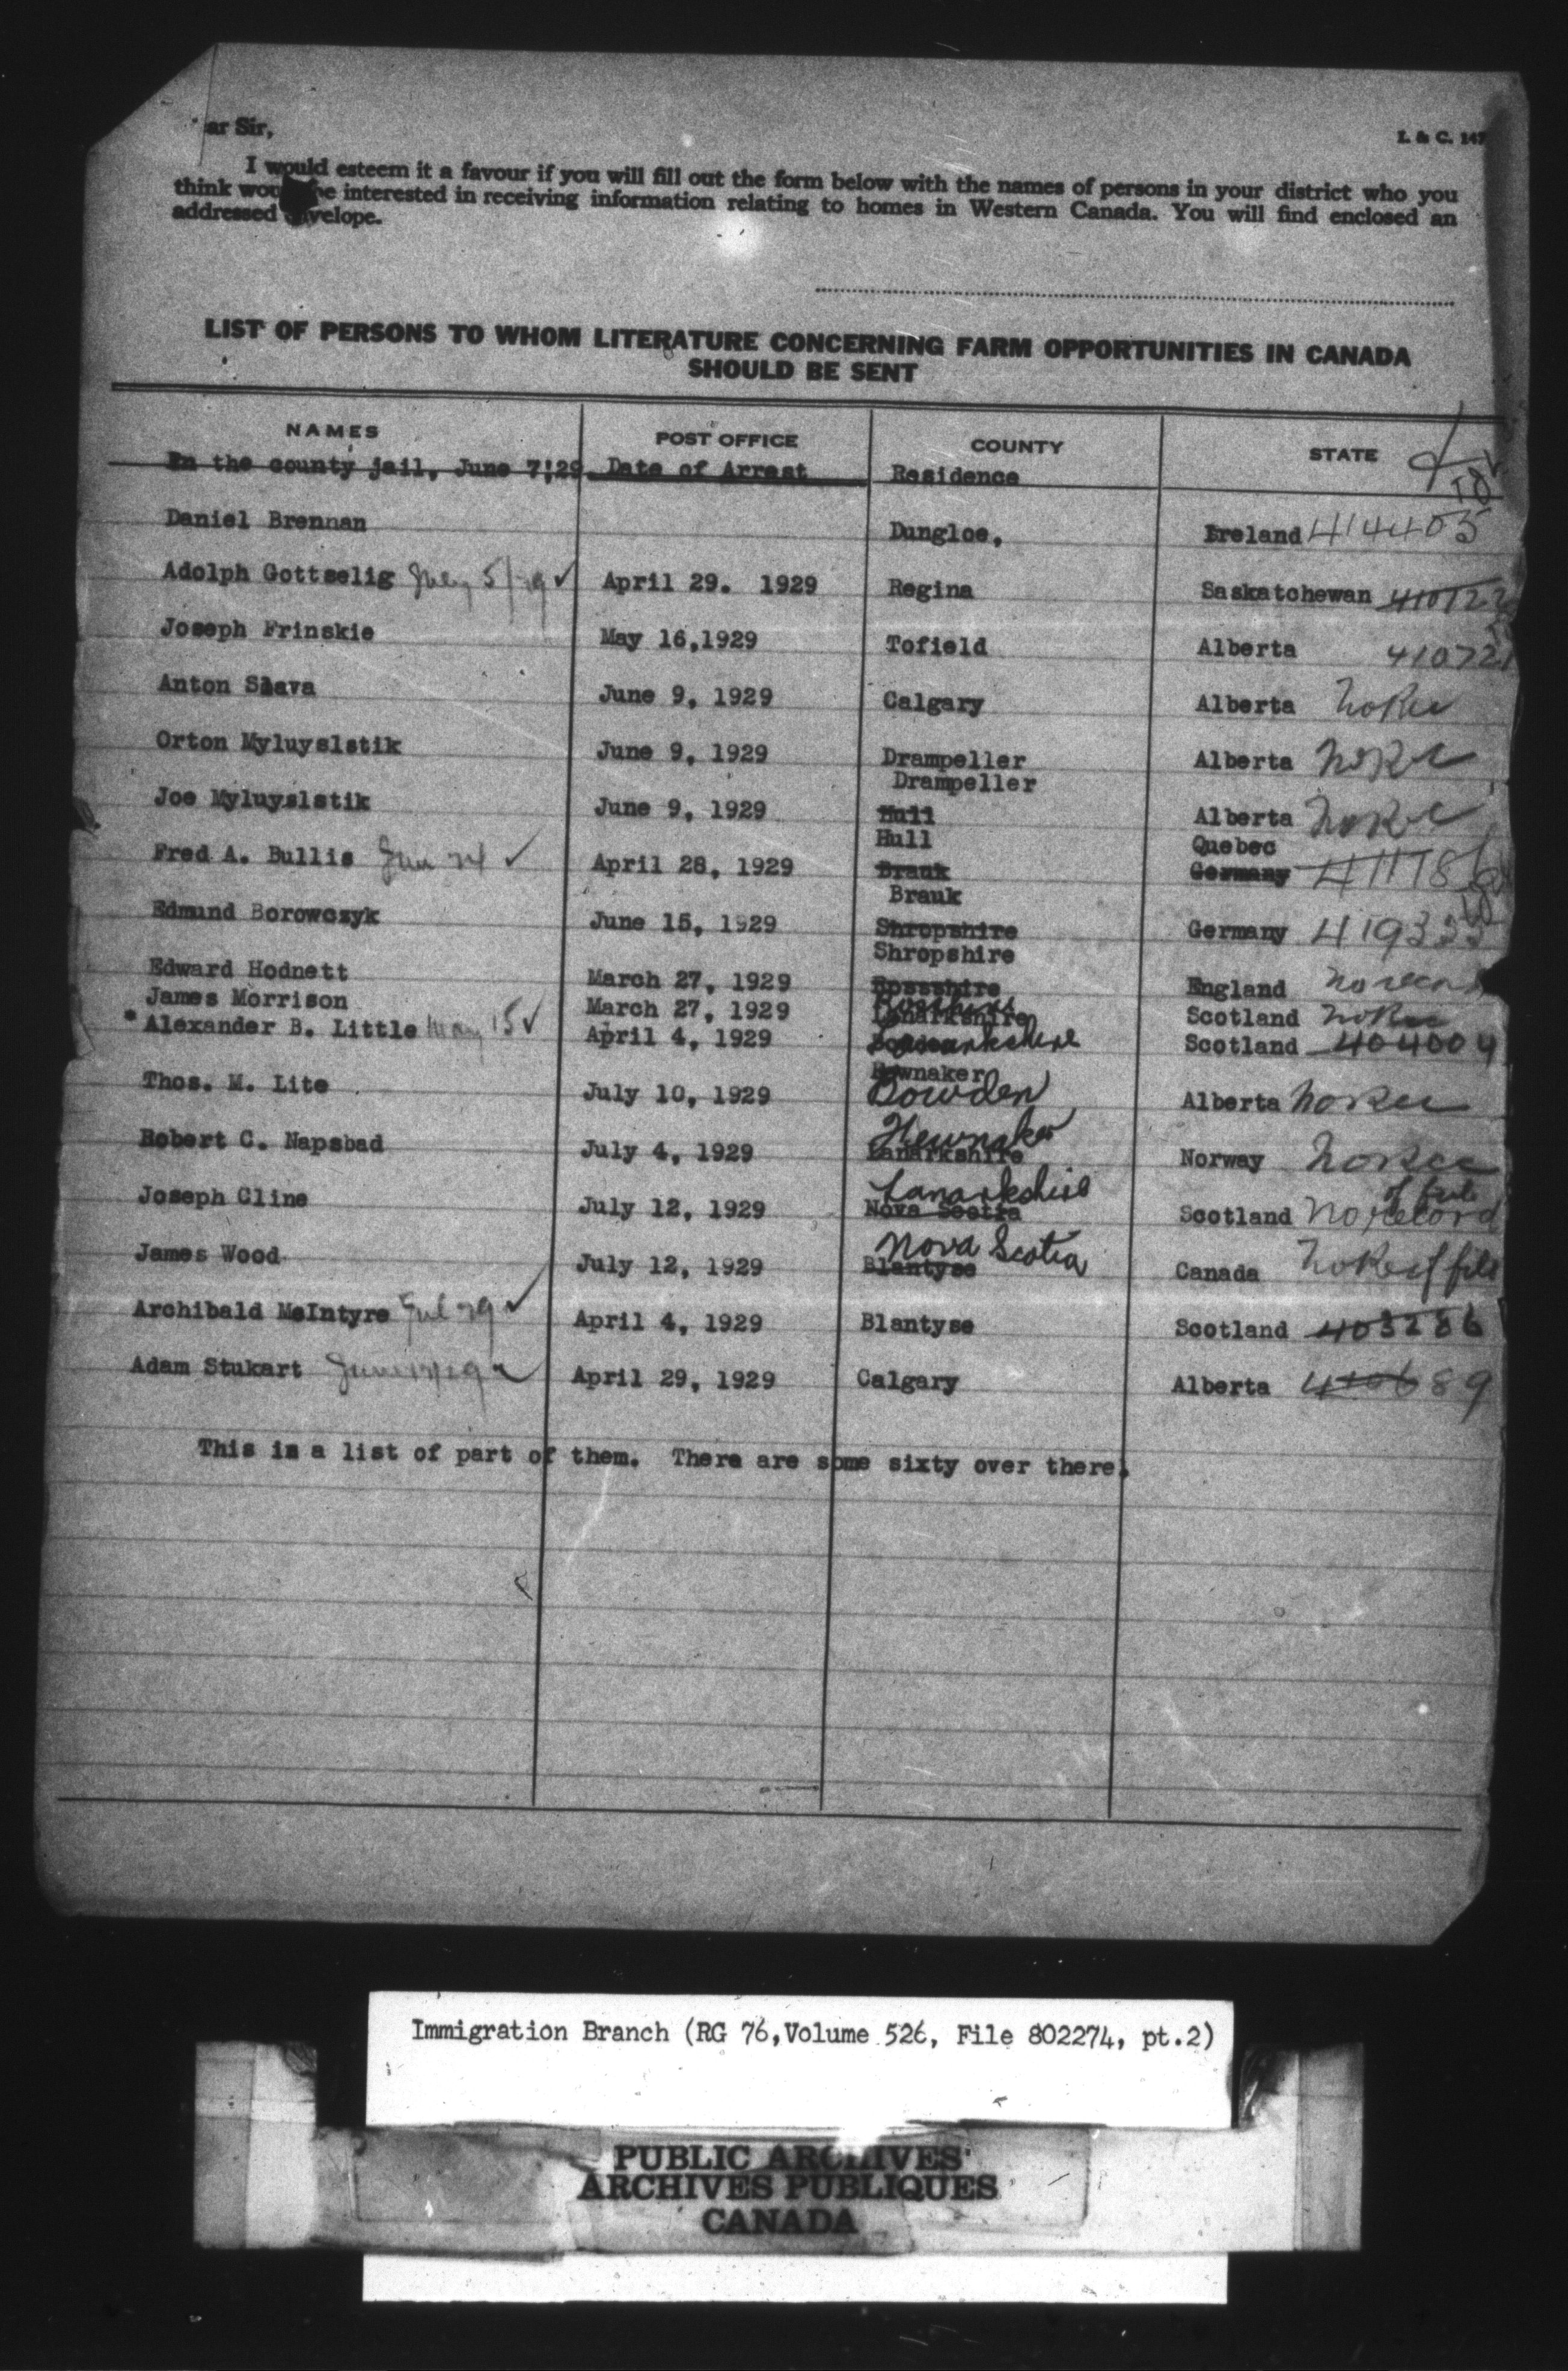 ar Sir,
I. & C. 147
I would esteem it a favour if you will fill out the form below with the names of persons in your district who you
think wou be interested in receiving information relating to homes in Western Canada. You will find enclosed an
addressed velope.
LIST OF PERSONS TO WHOM LITERATURE CONCERNING FARM OPPORTUNITIES IN CANADA
SHOULD BE SENT
NAMES POST OFFICE COUNTY STATE
In the county jail, June 7!29 Date of Arrest Residence
Daniel Brennan Dungloe, Ireland 414405
Adolph Gottselig July 5/29 ✓ April 29. 1929 Regina Saskatchewan
Joseph Frinskie May 16,1929 Tofield Alberta 410721
Anton Slava June 9, 1929 Calgary Alberta no Rec
Orton Myluyslstik June 9, 1929 Drampeller Alberta no Rec
Drampeller
Joe Myluyslstik June 9, 1929 Hull Alberta no Rec
Hull Quebec
Fred A. Bullis Jun 24 ✓ April 28, 1929 Brauk Germany
Brauk
Edmund Borowczyk June 15, 1929 Shropshire Germany
Shropshire
Edward Hodnett March 27, 1929 England no record
James Morrison March 27, 1929 Lanarkshire Scotland no Rec
* Alexander B. Little May 15 ✓ April 4, 1929 Lanarkshire Scotland 404004
Hewnaker
Thos. M. Lite July 10, 1929 Bowden Alberta no Rec
Hewnaker
Robert C. Napsbad July 4, 1929 Lanarkshire Norway no Rec
Lanarkshire of file
Joseph Cline July 12, 1929 Nova Scotia Scotland No record
Nova Scotia
James Wood July 12, 1929 Blantyse Canada no Rec of file
Archibald McIntyre Jul 29 ✓ April 4, 1929 Blantyse Scotland 403286
Adam Stukart April 29, 1929 Calgary Alberta 410689
This is a list of part of them. There are some sixty over there.
Immigration Branch (RG 76, Volume 526, File 802274, pt.2)
PUBLIC ARCHIVES
ARCHIVES PUBLIQUES
CANADA